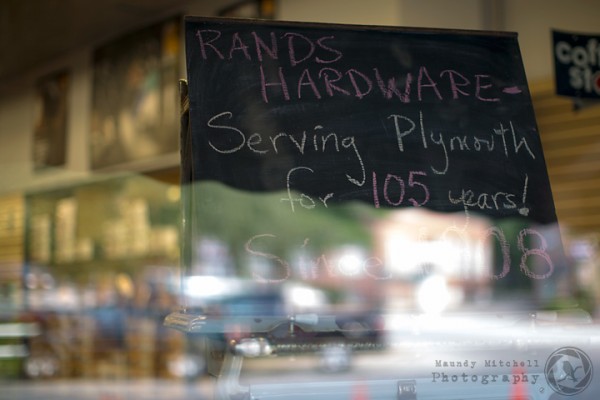 RANDS
HARDWARE-
Serving Plymouth
for 105 years!
Since 1908
Maundy Mitchell
Photography